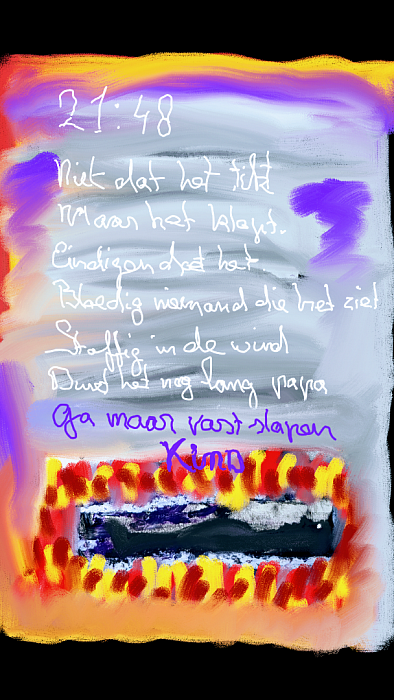 21:48
Niet dat het tikt
Maar het klopt.
Eindigen doet het
Bloedig niemand die het ziet
Stoffig in de wind
Duurt het nog lang papa
Ga maar vast slapen
Kind